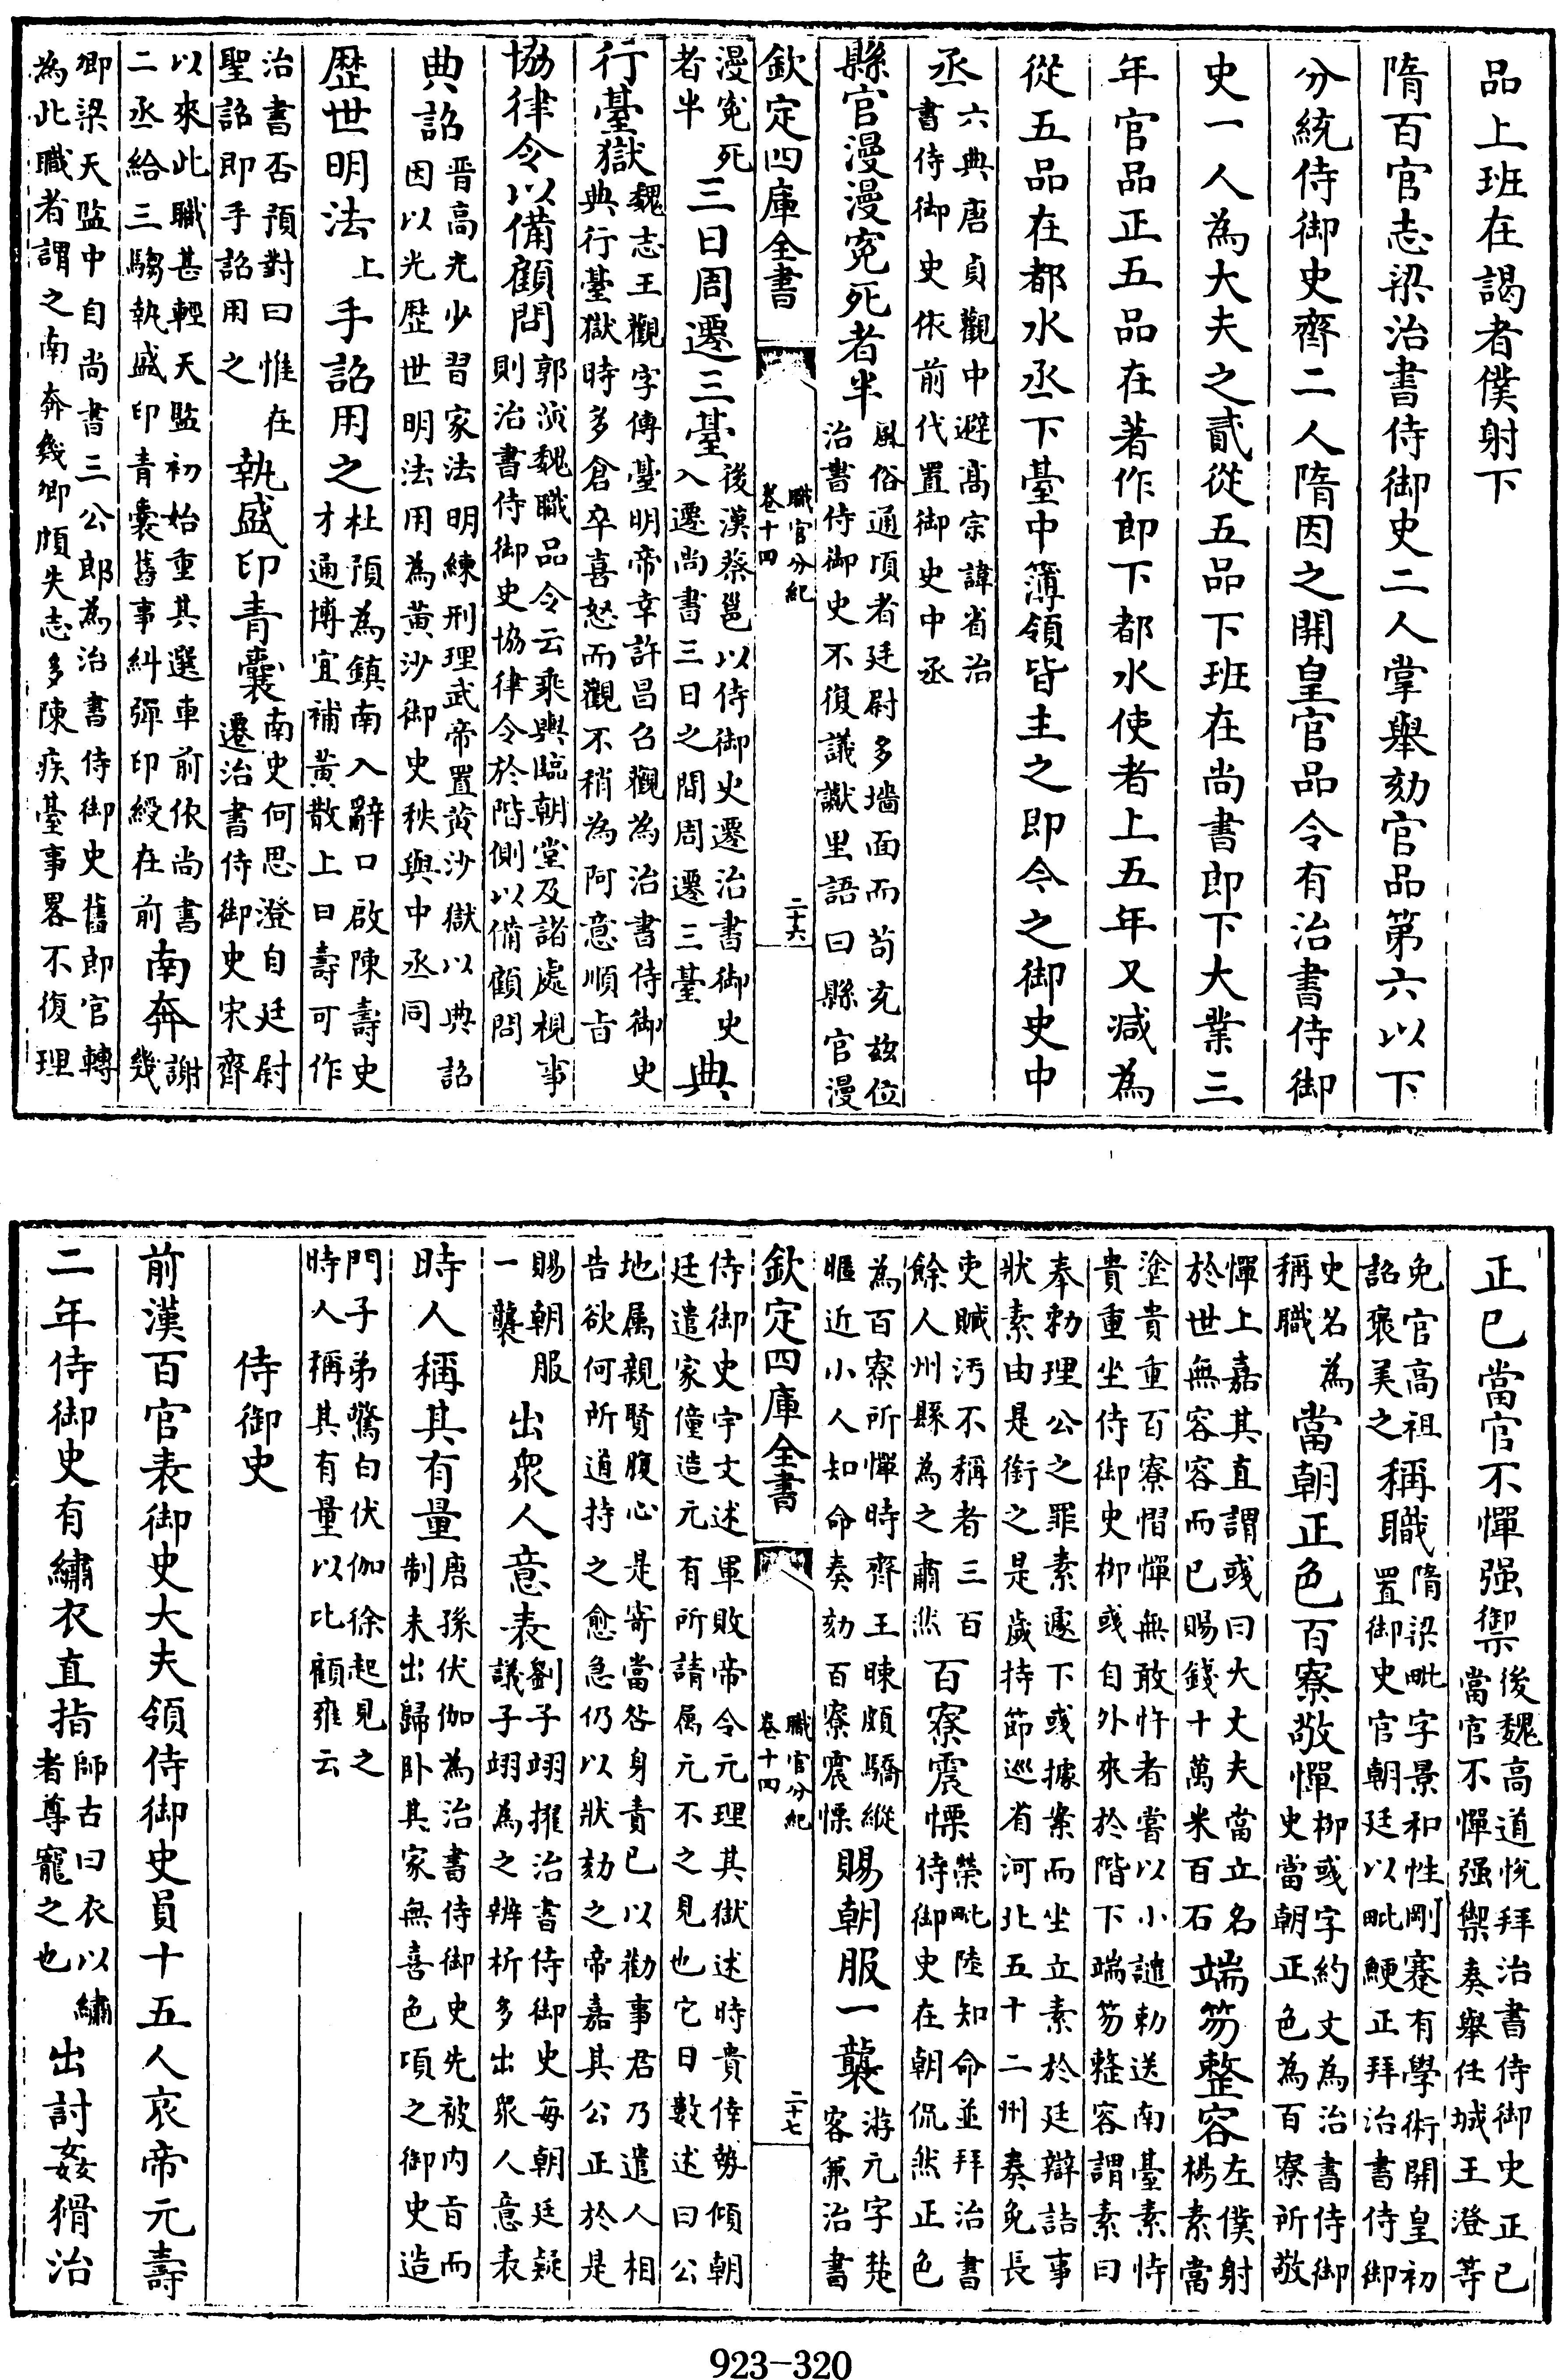 品上班在謁者僕射下
隋百官志梁治書侍御史二人掌舉劾官品第六以下
分統侍御史齊二人隋因之開皇官品令有治書侍御
史一人為大夫之貳從五品下班在尚書郎下大業三
年官品正五品在著作郎下都水使者上五年又減為
從五品在都水丞下臺中簿領皆主之即今之御史中
丞六典唐貞觀中避髙宗諱省治書侍御史依前代置御史中丞
縣官漫漫寃死者半風俗通頃者廷尉多墻面而苟充玆位治書侍御史不復議讞里語曰縣官漫
欽定四庫全書 職官分紀 卷十四 二十六
漫寃死者半三日周遷三臺後漢蔡邕以侍御史遷治書御史入遷尚書三日之間周遷三臺典
行臺獄魏志王觀字傳臺明帝幸許昌召觀為治書侍御史典行臺獄時多倉卒喜怒而觀不稍為阿意順旨
協律令以備顧問郭演魏職品令云乘輿臨朝堂及諸處視事則治書侍御史協律令於階側以備顧問
典詔晉高光少習家法明練刑理武帝置黃沙獄以典詔因以光歴世明法用為黃沙御史秩與中丞同
歴世明法上手詔用之杜預為鎮南入辭口啟陳壽史才通博宜補黃散上曰壽可作
治書否預對曰惟在聖詔即手詔用之執盛印青囊南史何思澄自廷尉遷治書侍御史宋齊
以來此職甚輕天監初始重其選車前依尚書二丞給三騶執盛印青囊舊事糾彈印綬在前南奔謝幾
卿梁天監中自尚書三公郎為治書侍御史舊郎官轉為此職者謂之南奔幾卿頗失志多陳疾臺事畧不復理
正已當官不憚强禦後魏高道悅拜治書侍御史正已當官不憚强禦奏舉任城王澄等
免官高祖詔褒美之稱職隋梁毗字景和性剛蹇有學術開皇初置御史官朝廷以毗鯁正拜治書侍御
史名為稱職當朝正色百寮敬憚柳彧字約文為治書侍御史當朝正色為百寮所敬
憚上嘉其直謂彧曰大丈夫當立名於世無容容而已賜錢十萬米百石端笏整容左僕射楊素當
塗貴重百寮慴憚無敢忤者嘗以小譴勅送南臺素恃貴重坐侍御史柳彧自外來於階下端笏整容謂素曰
奉勅理公之罪素遽下彧據案而坐立素於廷辯詰事狀素由是銜之是歲持節巡省河北五十二州奏免長
吏贓汚不稱者三百餘人州縣為之肅然百寮震慄榮毗陸知命並拜治書侍御史在朝侃然正色
為百寮所憚時齊王暕頗驕縱暱近小人知命奏劾百寮震慄賜朝服一襲游元字楚客兼治書
欽定四庫全書 職官分紀 卷十四 二十七
侍御史宇文述軍敗帝令元理其獄述時貴倖勢傾朝廷遣家僮造元有所請屬元不之見也它日數述曰公
地属親賢腹心是寄當咎身責已以勸事君乃遣人相告欲何所道持之愈急仍以狀劾之帝嘉其公正於是
賜朝服一襲出衆人意表劉子翊擢治書侍御史每朝廷疑議子翊為之辨析多出衆人意表
時人稱其有量唐孫伏伽為治書侍御史先被内旨而制未出歸卧其家無喜色項之御史造
門子弟驚白伏伽徐起見之時人稱其有量以比顧雍云
侍御史
前漢百官表御史大夫領侍御史員十五人哀帝元壽
二年侍御史有繡衣直指師古曰衣以繡者尊寵之也出討姦猾治
923-320